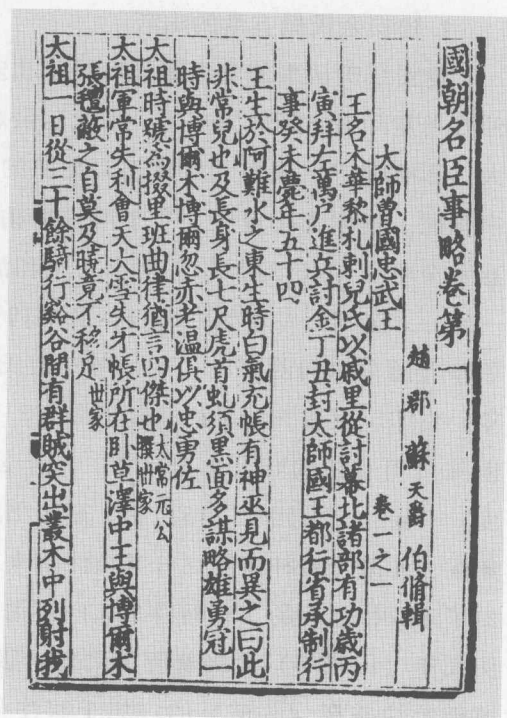 國朝名臣事略卷第一
趙郡蘇天爵伯脩輯
太師魯國忠武王
卷一之一
王名木華黎札剌兒氏以戚里從討幕北諸部有功歲丙
寅拜左萬戶進兵討金丁丑封太師國王都行省承制行
事癸未薨年五十四
王生於阿難水之東生時白氣充帳有神巫見而異之曰此
非常兒也及長身長七尺虎首虬須黑面多謀略雄勇冠一
時與博爾朮博爾忽赤老溫俱以忠勇佐
太祖時號為掇里班曲律猶言四傑也太常元公
撰世家
太祖軍常失利會天大雪失牙帳所在臥草澤中王與博爾朮
張氊蔽之自莫及曉竟不移足世家
太祖一日從三十餘騎行谿谷間有群賊突出叢木中列射我